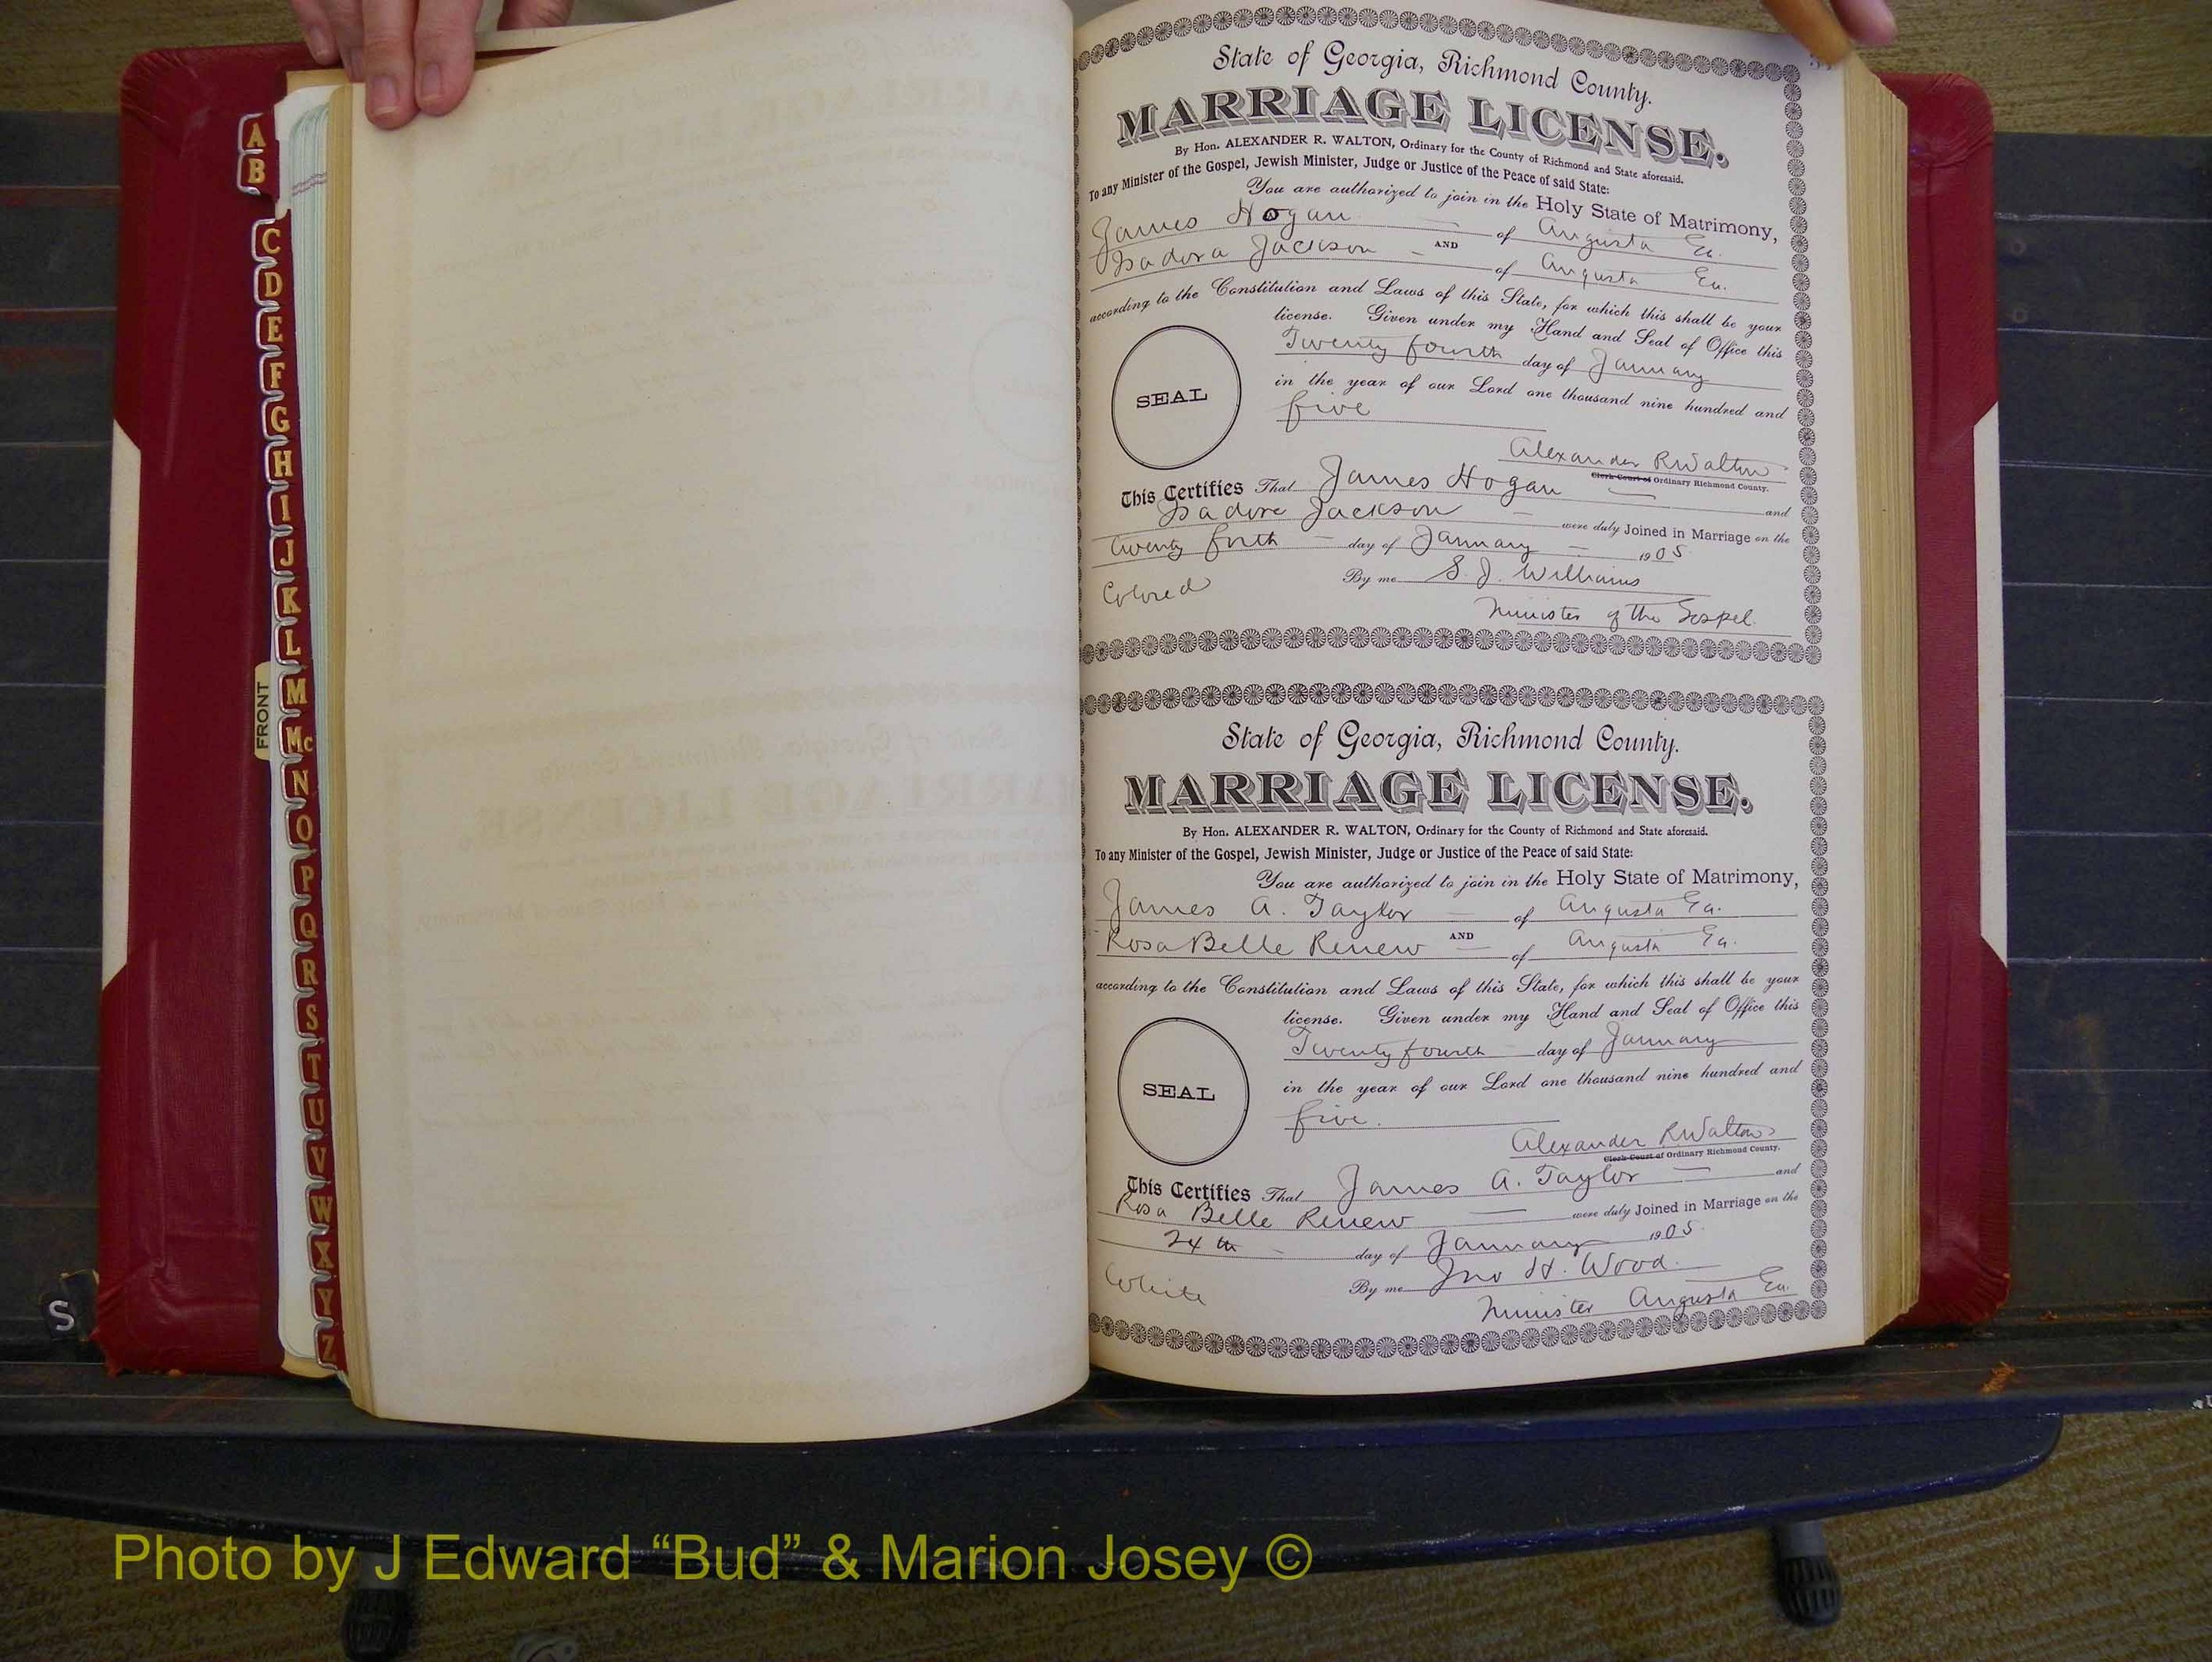 A
B
C
D
E
F
G
H
I
J
K
L
M
Mc
N
O
P
Q
R
S
T
U
V
W
X
Y
Z
FRONT
S
State of Georgia, Richmond County.
MARRIAGE LICENSE.
By Hon. ALEXANDER R. WALTON, Ordinary for the County of Richmond and State aforesaid.
To any Minister of the Gospel, Jewish Minister, Judge or Justice of the Peace of said State:
You are authorized to join in the Holy State of Matrimony,
James Hogan of Augusta Ga.
AND
Isadora Jackson of Augusta Ga.
according to the Constitution and Laws of this State, for which this shall be your
license. Given under my Hand and Seal of Office this
Twenty fourth day of January
in the year of our Lord one thousand nine hundred and
five
SEAL
Alexander R Walton
Clerk Court of Ordinary Richmond County.
This Certifies That James Hogan and
Isadore Jackson were duly Joined in Marriage on the
twenty forth day of January 1905
By me S. J. Williams
Colored
Minister of the Gospel.
State of Georgia, Richmond County.
MARRIAGE LICENSE.
By Hon. ALEXANDER R. WALTON, Ordinary for the County of Richmond and State aforesaid.
To any Minister of the Gospel, Jewish Minister, Judge or Justice of the Peace of said State:
You are authorized to join in the Holy State of Matrimony,
James A. Taylor of Augusta Ga.
AND
Rosa Belle Renew of Augusta Ga.
according to the Constitution and Laws of this State, for which this shall be your
license. Given under my Hand and Seal of Office this
Twenty fourth day of January
in the year of our Lord one thousand nine hundred and
five.
SEAL
Alexander R Walton
Clerk Court of Ordinary Richmond County.
This Certifies That James A. Taylor and
Rosa Belle Renew were duly Joined in Marriage on the
24th day of January 1905.
By me Jno H. Wood.
White
Minister Augusta Ga.
Photo by J Edward “Bud” & Marion Josey ©